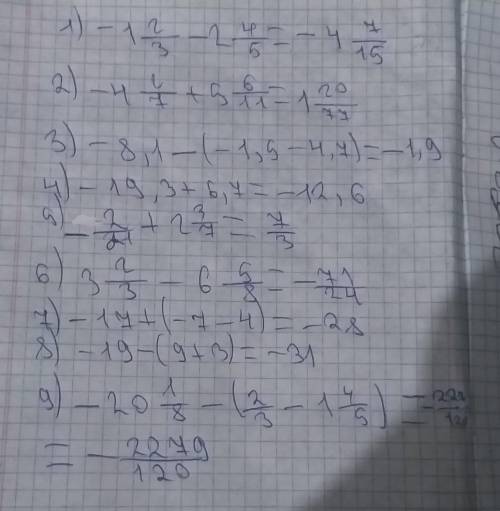 1) -1 2/3 - 2 4/5 = -4 7/15
2) -4 2/7 + 5 6/11 = 1 20/77
3) -8,1 - (-1,5 - 4,7) = -1,9
4) -19,3 + 6,7 = -12,6
5) -2/21 + 2 3/7 = 7/3
6) 3 2/3 - 6 5/8 = -71/24
7) -17 + (-7 - 4) = -28
8) -19 - (9 + 3) = -31
9) -20 1/8 - (2/3 - 1 4/5) =
= -2279/120